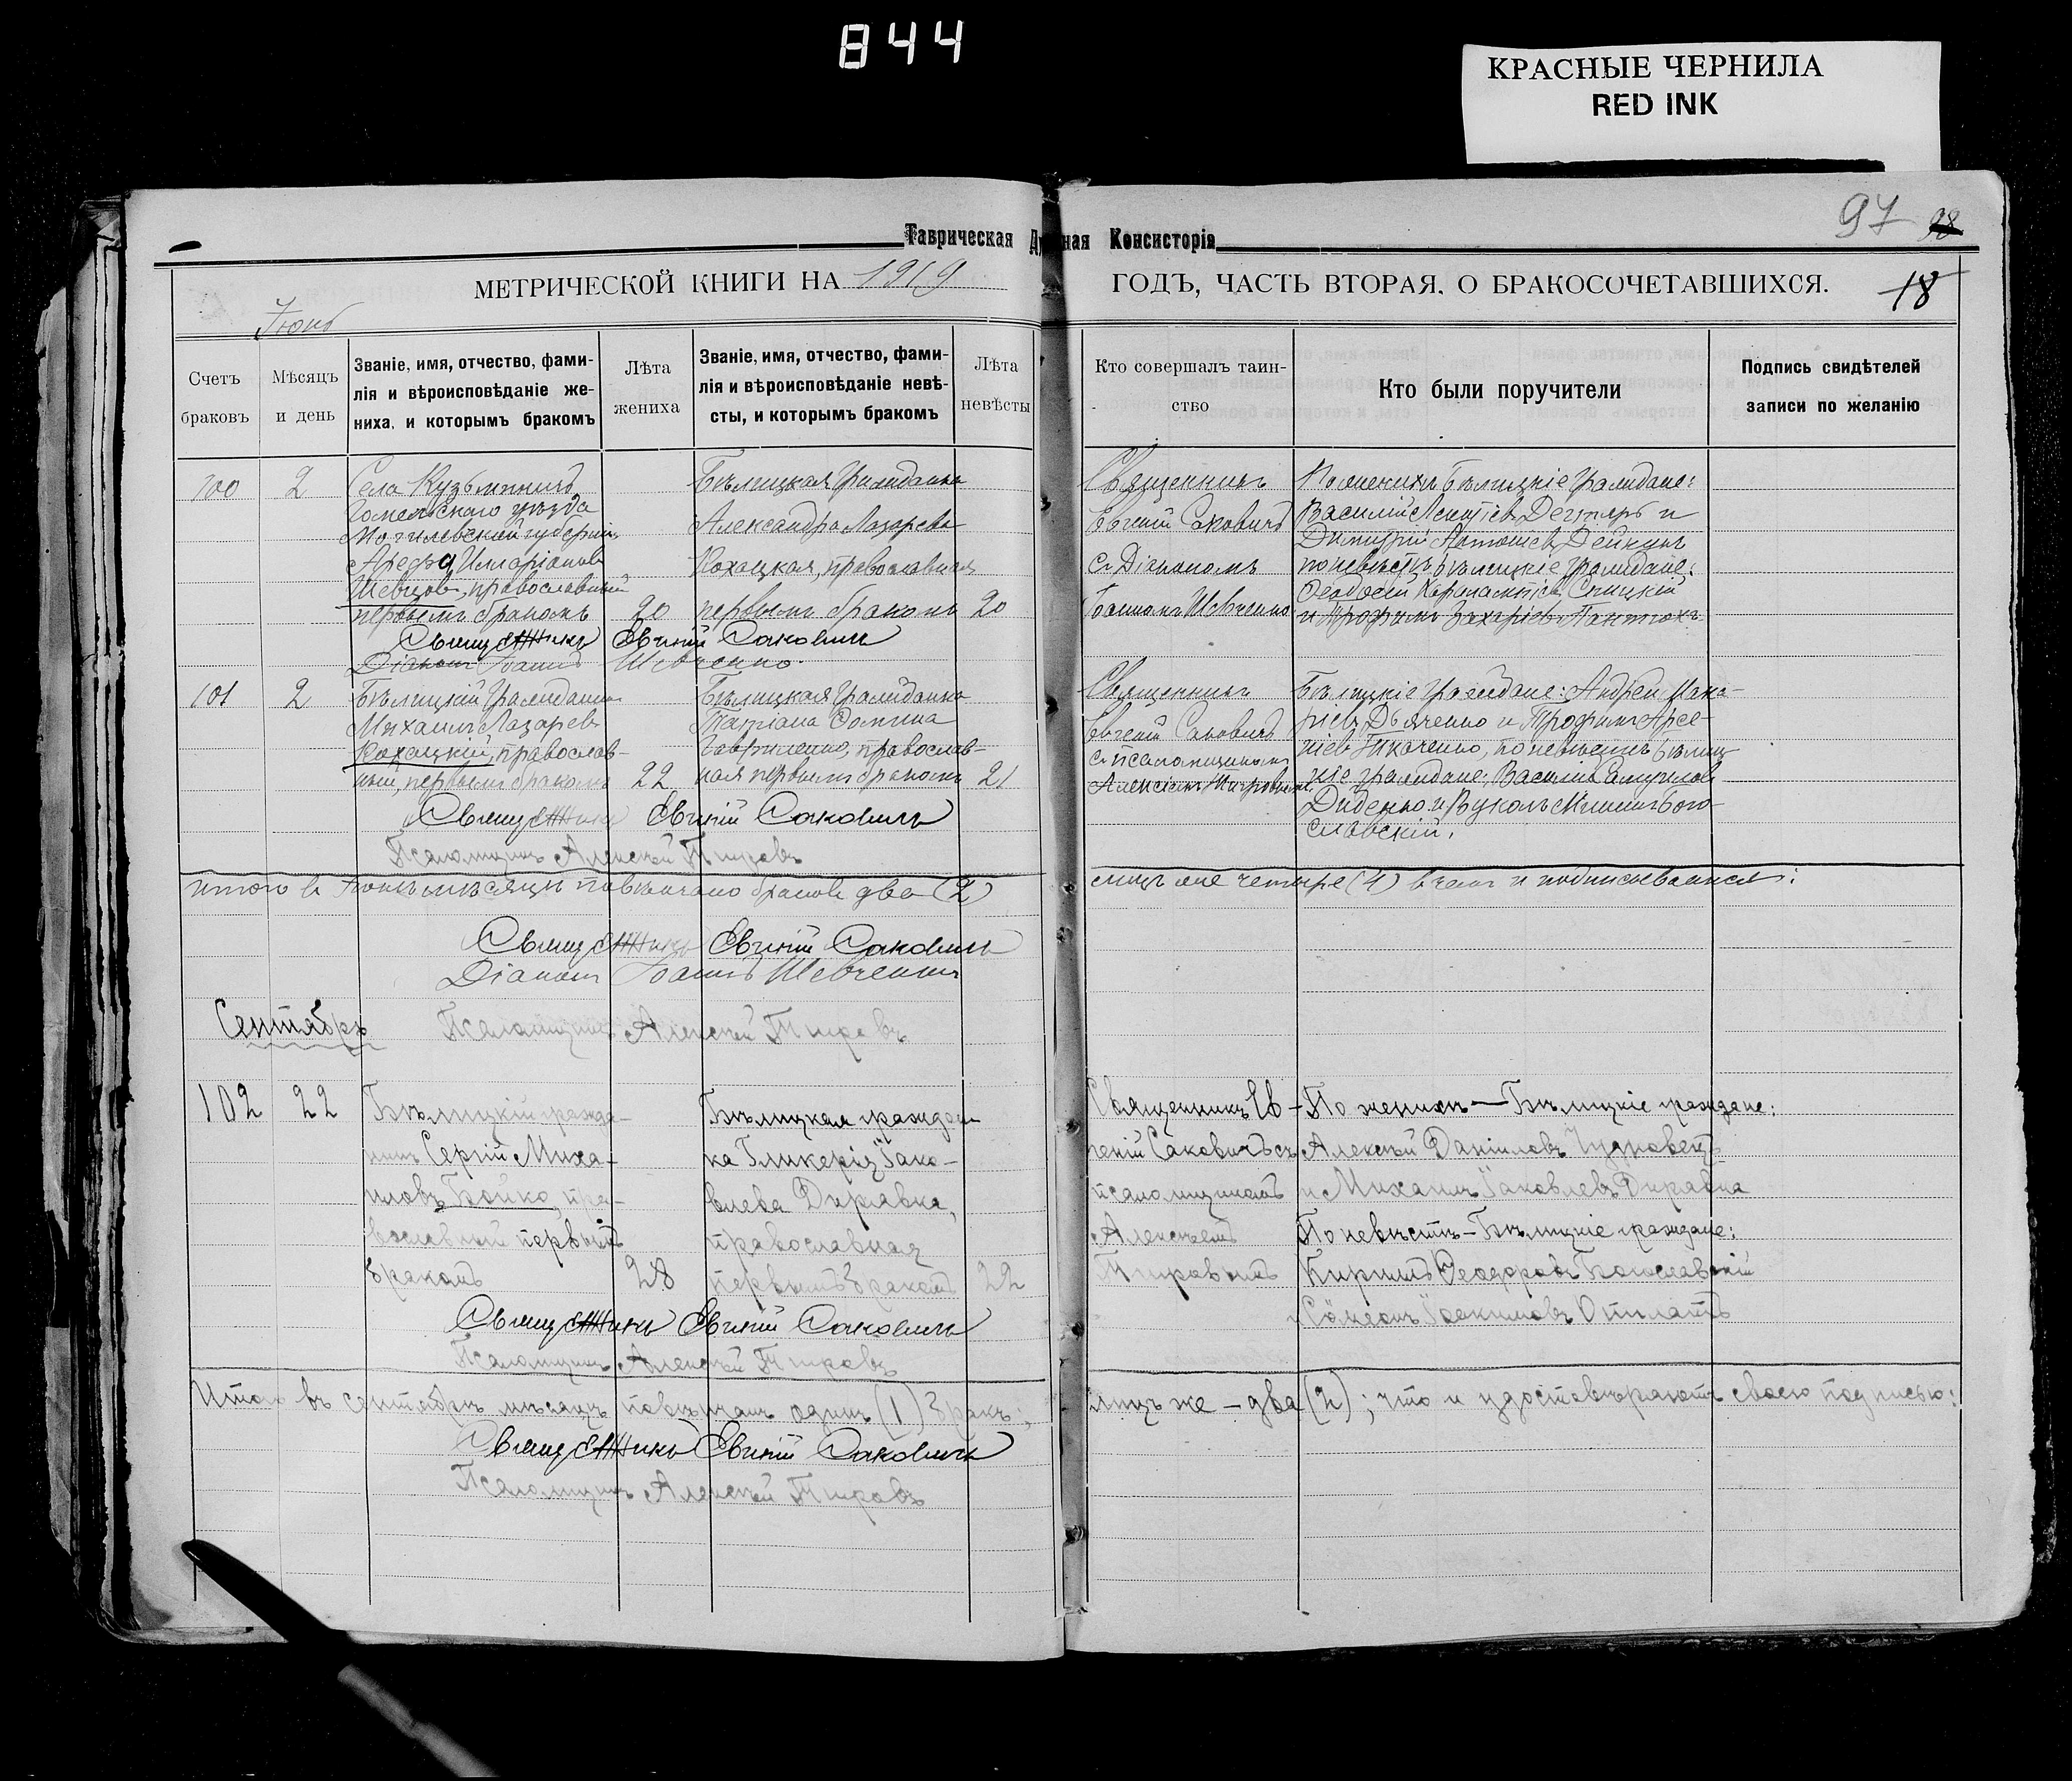 844
КРАСНЫЕ ЧЕРНИЛА
RED INK
97 98
Таврическая Духовная Консисторія
МЕТРИЧЕСКОЙ КНИГИ НА 1919 ГОДЪ, ЧАСТЬ ВТОРАЯ, О БРАКОСОЧЕТАВШИХСЯ. 18
Іюнь
Счетъ
браковъ
Мѣсяцъ
и день
Званіе, имя, отчество, фами-
лія и вѣроисповѣданіе же-
ниха, и которымъ бракомъ
Лѣта
жениха
Званіе, имя, отчество, фами-
лія и вѣроисповѣданіе невѣ-
сты, и которымъ бракомъ
Лѣта
невѣсты
Кто совершалъ таин-
ство
Кто были поручители
Подпись свидѣтелей
записи по желанію
100
2
Села
Гомельскаго уѣзда
Могилевской губерніи
Арефа Илларіоновъ
Шевцовъ, православный
первымъ бракомъ
20
Бѣлицкая гражданка
Александра Лазарева
Кохацкая, православная
первымъ бракомъ
20
Священникъ
Евгеній Саковичъ
съ Діакономъ
Іоанномъ Шевченко
По женихѣ Бѣлицкіе граждане:
Василій Дегтярь и
Димитрій Дейкунъ
по невѣстѣ бѣлицкіе граждане:
Феодосій Спицкій
и Трофимъ Захаріевъ Пантюхъ
Священникъ Евгеній Саковичъ
Діаконъ Іоаннъ Шевченко.
101
2
Бѣлицкій гражданинъ
Михаилъ Лазаревъ
Кохацкій, православ-
ный, первымъ бракомъ
22
Бѣлицкая гражданка
Татіана Фомина
Гавриленко, православ-
ная первымъ бракомъ
21
Священникъ
Евгеній Саковичъ
съ псаломщикомъ
Алексіемъ Тигровымъ
Бѣлицкіе граждане: Андрей Мака-
ріевъ Дьяченко и Трофимъ Арсе-
ніевъ Ткаченко, по невѣстѣ бѣлиц-
кіе граждане: Василій Самуиловъ
Диденко и Вуколъ Бого-
славскій.
Священникъ Евгеній Саковичъ
Псаломщикъ Алексѣй Тигровъ
Итого в Іюнѣ мѣсяцѣ повѣнчано браковъ два (2)
лицъ же четыре (4) в чемъ и подписываемся:
Священникъ Евгеній Саковичъ
Діаконъ Іоаннъ Шевченко
Псаломщикъ Алексѣй Тигровъ
Сентябрь
102
22
Бѣлицкій гражда-
нинъ Сергій Миха-
иловъ Бойко, пра-
вославный первымъ
бракомъ
28
Бѣлицкая граждан-
ка Гликерія Іако-
влева Дирявка,
православная
первымъ бракомъ
22
Священникъ Ев-
геній Саковичъ съ
псаломщикомъ
Алексѣемъ
Тигровымъ
По женихѣ — Бѣлицкіе граждане:
Алексѣй Даніиловъ Чудновецъ
и Михаилъ Іаковлевъ Дирявка
По невѣстѣ — Бѣлицкіе граждане:
Кириллъ Феодоровъ Богославскій
и Симеонъ Іоакимовъ
Священникъ Евгеній Саковичъ
Псаломщикъ Алексѣй Тигровъ
Итого въ сентябрѣ мѣсяцѣ повѣнчанъ одинъ (1) бракъ;
лицъ же — два (2); что и удостовѣряютъ своею подписью:
Священникъ Евгеній Саковичъ
Псаломщикъ Алексѣй Тигровъ